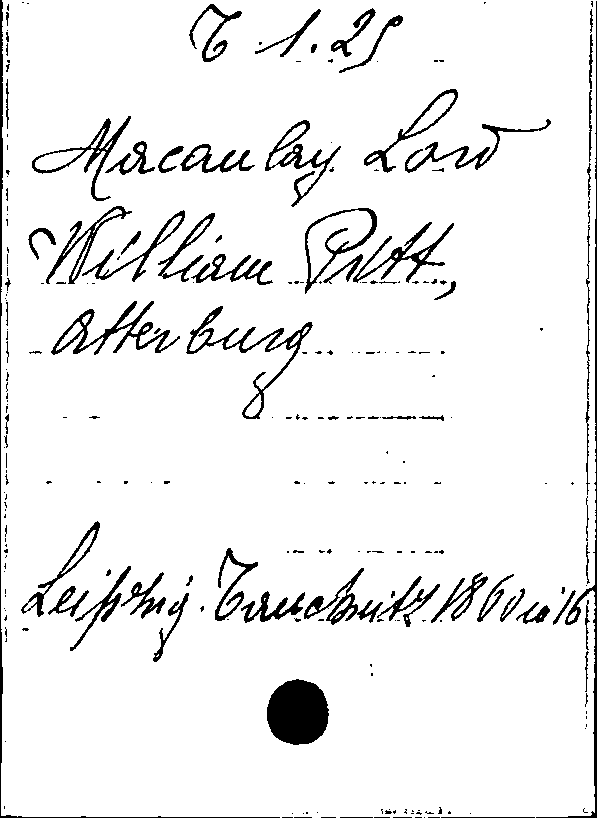 T 1.25
Macaulay Lord
William Pitt,
Atterburg
Leipzig. Tauchnitz 1860 in 16